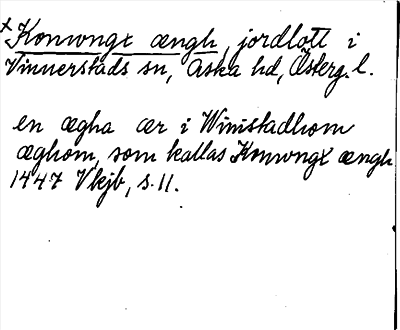 x Konwngx ængh, jordlott i
Vinnerstads sn, Aska hd, Österg.l.
en ægha ær i Winistadhom
æghom, som kallas Konwngx ængh
1447 Vkjb, s. 11.